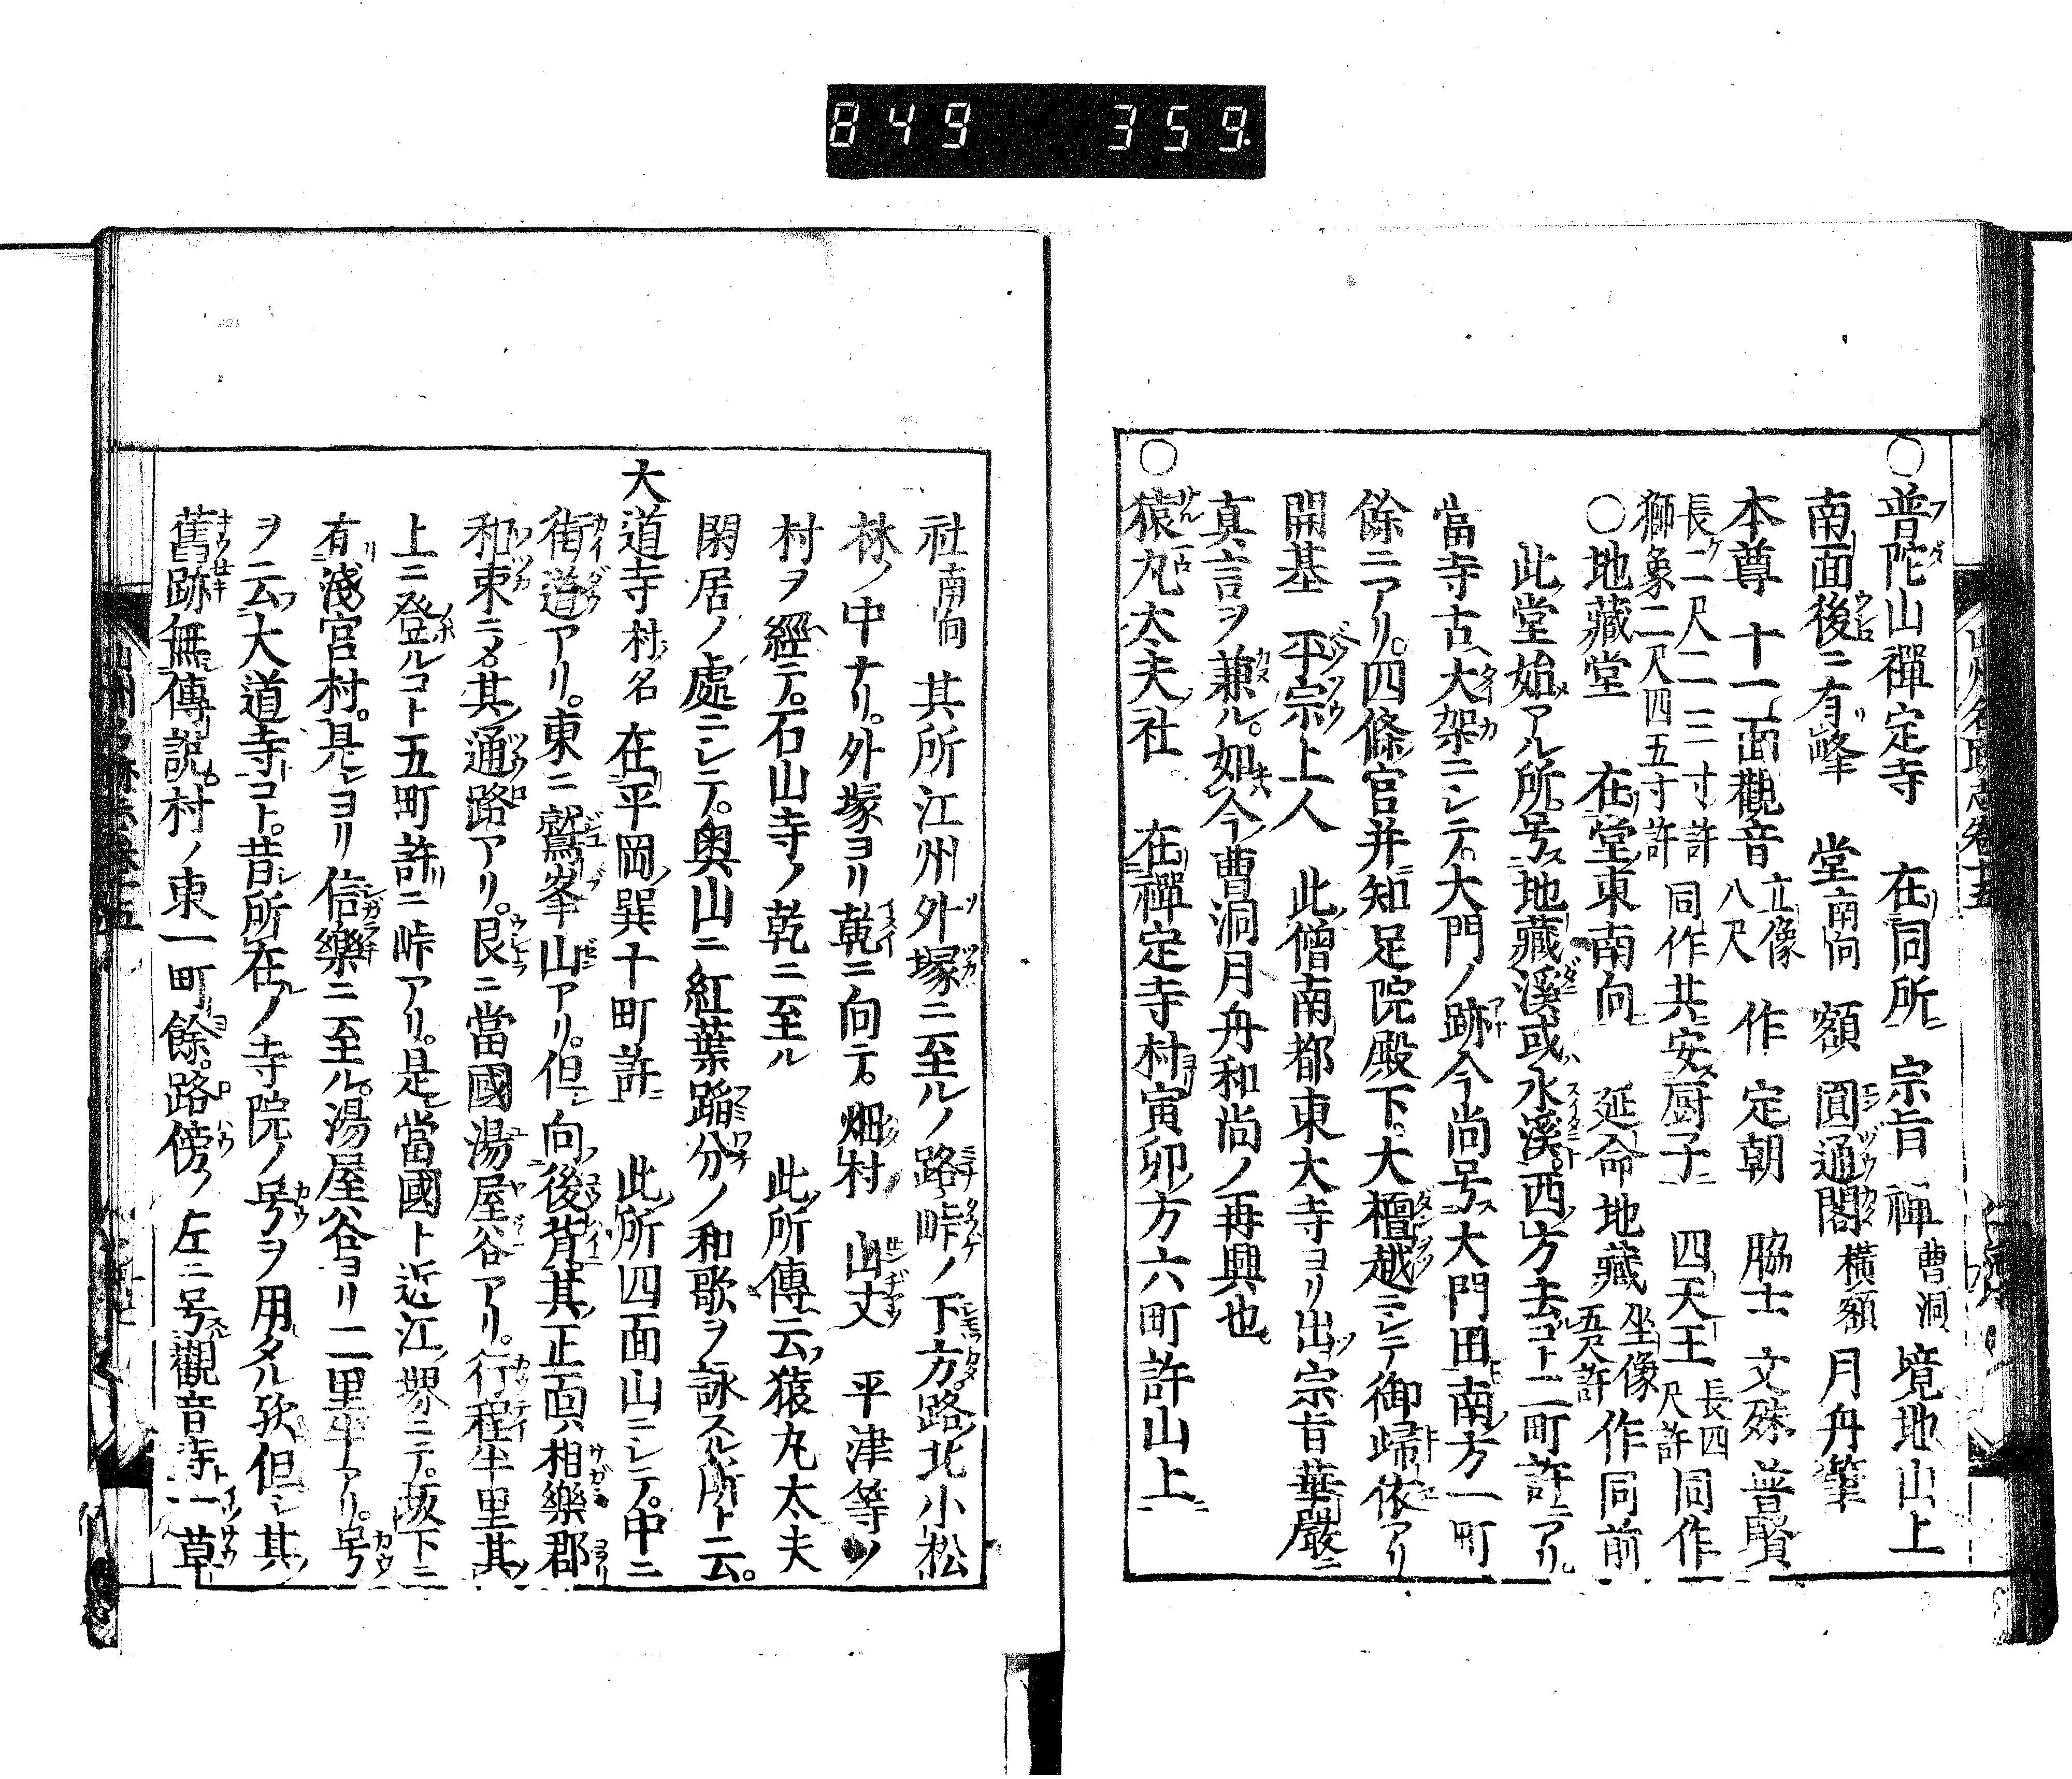 849 359
山州名跡志卷十五
○普陀山禪定寺 在同所 宗旨 禪曹洞 境地山上
南面後ニ有峰 堂南向 額 圓通閣橫額 月舟筆
本尊 十一面觀音立像八尺 作 定朝 脇士 文殊 普賢
長二尺二三寸許獅象二尺四五寸許 同作共安厨子 四天王長四尺許 同作
○地藏堂 在堂東南向 延命地藏坐像五尺許 作同前
此堂始アル所号地藏溪或水溪西方去コト二町許ニアリ
當寺古大架ニシテ大門ノ跡今尚号大門田南方一町
餘ニアリ四條官并知足院殿下大檀越ニシテ御歸依アリ
開基 平宗上人 此僧南都東大寺ヨリ出宗旨華嚴ニ
真言ヲ兼ル如今曹洞月舟和尚ノ再興也
○猿丸太夫社 在禪定寺村寅卯方六町許山上
社南向 其所江州外塚ニ至ルノ路峠ノ下方路北小松
林ノ中ナリ外塚ヨリ乾ニ向テ畑村 山丈 平津等ノ
村ヲ經テ石山寺ノ乾ニ至ル 此所傳云猿丸太夫
閑居ノ處ニシテ奥山ニ紅葉蹈分ノ和歌ヲ詠スル所ト云
大道寺村名 在平岡巽十町許 此所四面山ニシテ中ニ
街道アリ東ニ鷲峯山アリ但向後背其正面ハ相樂郡
和束ニメ其通路アリ艮ニ當國湯屋谷アリ行程半里其
上ニ登ルコト五町許ニ峠アリ是當國ト近江堺ニテ坂下ニ
有淺宮村是ヨリ信樂ニ至ル湯屋谷ヨリ二里半アリ号
ヲ云大道寺コト昔所在ノ寺院ノ号ヲ用タル歟但シ其
舊跡無傳説村ノ東一町餘路傍ノ左ニ号觀音寺一草